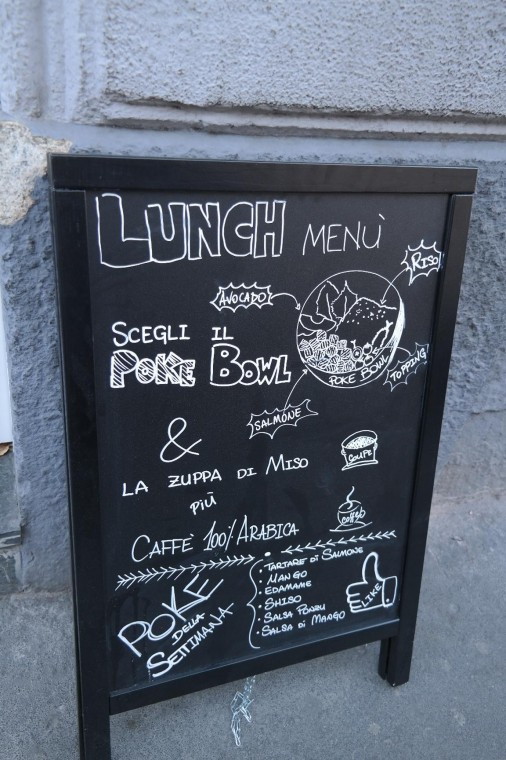 LUNCH MENÙ
RISO
AVOCADO
SCEGLI IL
POKE BOWL
POKE BOWL
TOPPING
SALMONE
&
LA ZUPPA DI MISO
SOUPE
più
COFFEE
CAFFÈ 100% ARABICA
POKE
DELLA
SETTIMANA
• TARTARE DI SALMONE
• MANGO
• EDAMAME
• SHISO
• SALSA PONZU
• SALSA DI MANGO
LIKE